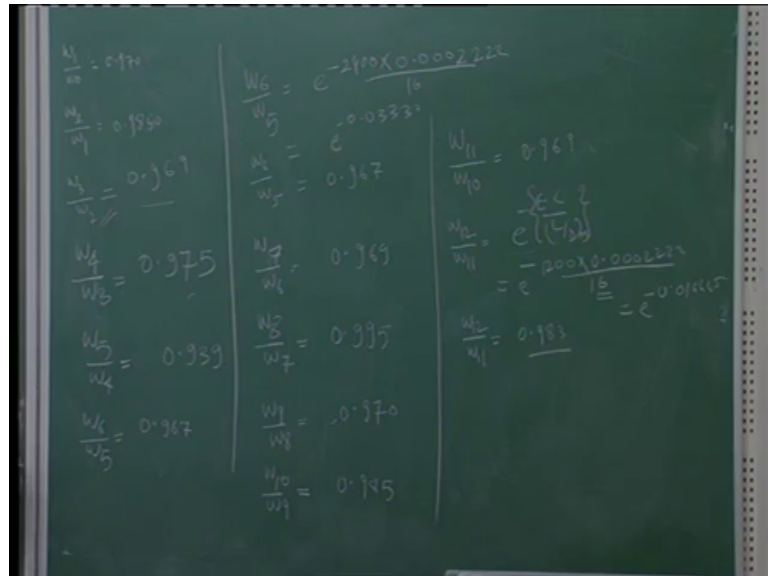 W1/W0 = 0.970
W2/W1 = 0.9850
W3/W2 = 0.969
W4/W3 = 0.975
W5/W4 = 0.939
W6/W5 = 0.967
W6/W5 = e^-2400X0.0002222/16
= e^-0.0333
W6/W5 = 0.967
W7/W6 = 0.969
W8/W7 = 0.995
W9/W8 = 0.970
W10/W9 = 0.985
W11/W10 = 0.969
W12/W11 = e
= e^-1200X0.0002222/16 = e
W12/W11 = 0.983